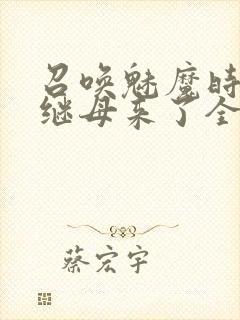 召唤魅魔时
继母来了全
蔡宏宇